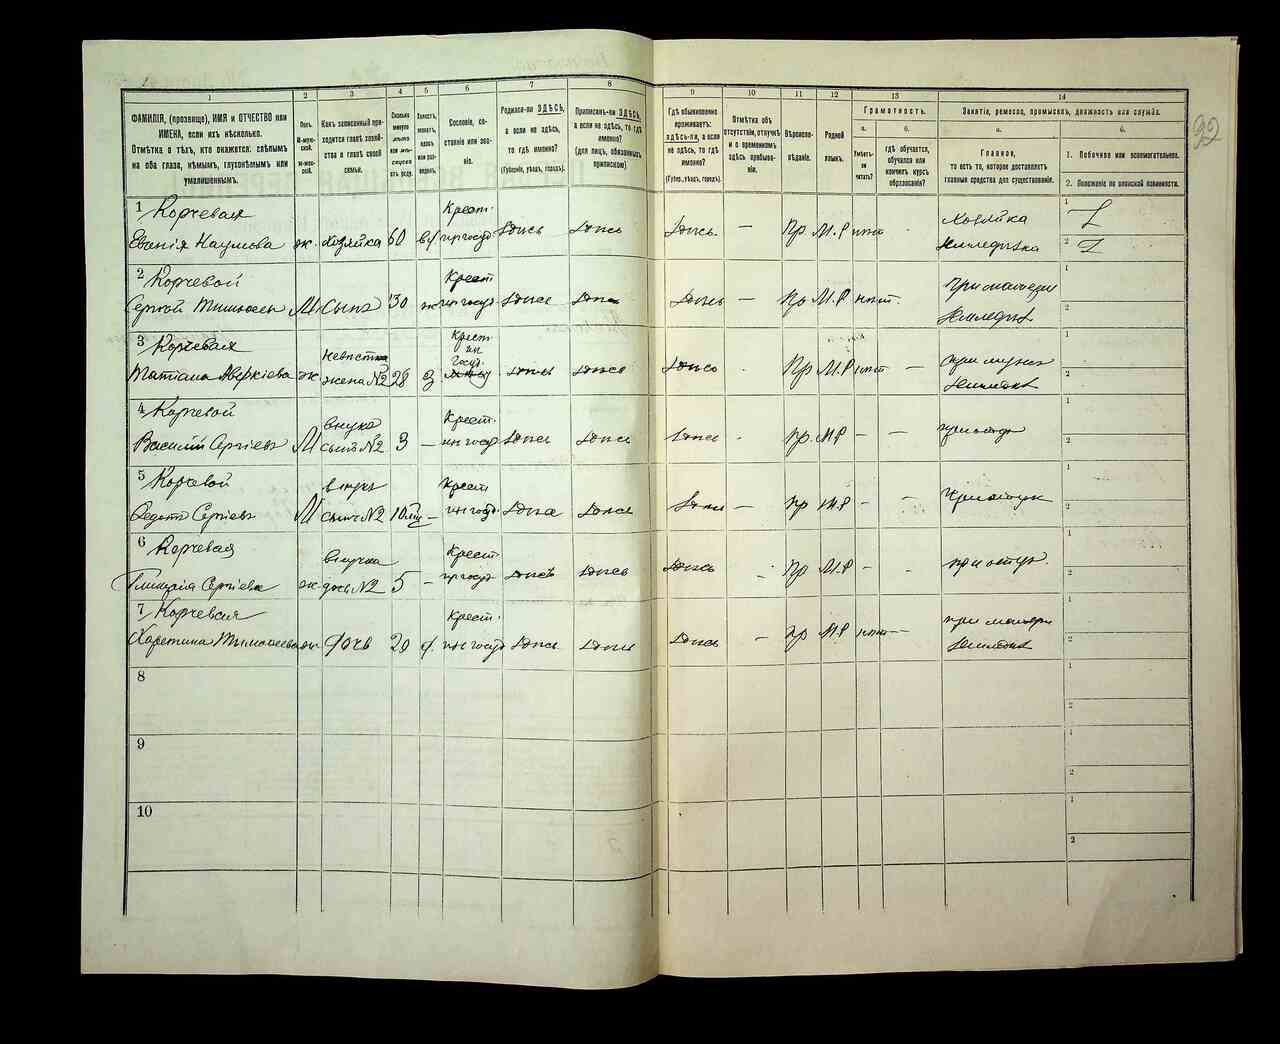 92
1
2
3
4
5
6
7
8
9
10
11
12
13
14
ФАМИЛІЯ, (прозвище), ИМЯ и ОТЧЕСТВО или
ИМЕНА, если ихъ нѣсколько.
Отмѣтка о тѣхъ, кто окажется: слѣпымъ
на оба глаза, нѣмымъ, глухонѣмымъ или
умалишеннымъ.
Полъ.
М-мужской.
Ж-женскій.
Какъ записанный приходится главѣ хозяйства и главѣ своей семьи.
Сколько минуло лѣтъ или мѣсяцевъ отъ роду.
Холостъ, женатъ, вдовъ или разведенъ.
Сословіе, состояніе или званіе.
Родился-ли ЗДѢСЬ,
а если не здѣсь,
то гдѣ именно?
(Губернія, уѣздъ, городъ).
Приписанъ-ли ЗДѢСЬ,
а если не здѣсь, то гдѣ
именно?
(для лицъ, обязанныхъ
припискою)
Гдѣ обыкновенно
проживаетъ:
здѣсь-ли, а если
не здѣсь, то гдѣ
именно?
(Губер., уѣздъ, городъ).
Отмѣтка объ
отсутствіи, отлучкѣ
и о временномъ
здѣсь пребываніи.
Вѣроисповѣданіе.
Родной языкъ.
Грамотность.
а.
Умѣетъ-ли читать?
б.
гдѣ обучается,
обучался или
кончилъ курсъ
образованія?
Занятіе, ремесло, промыселъ, должность или служба.
а.
Главное,
то есть то, которое доставляетъ
главныя средства для существованія.
б.
1. Побочное или вспомогательное.
2. Положеніе по воинской повинности.
1 Корчевая
Евгенія Наумова ж. хозяйка 60 вд. Крест. из госуд. Здѣсь Здѣсь Здѣсь — Пр М.Р нѣтъ Хозяйка
2 Корчевой
Сергѣй М Сынъ 30 ж Крест из госуд Здѣсь Здѣсь Здѣсь — Пр М.Р нѣтъ При матери
3 Корчевая
Татіана Аверкіева ж. невѣстка жена №2 28 з. Крест из госуд. Здѣсь Здѣсь Здѣсь Пр М.Р нѣтъ — при мужѣ
4 Корчевой
Василій Сергіевъ М внукъ сынъ №2 3 — Крест. из госуд Здѣсь Здѣсь Здѣсь Пр. М.Р — — при отцѣ
5 Корчевой
Федотъ Сергіевъ М внукъ сынъ №2 10 — Крест из госуд. Здѣсь Здѣсь Здѣсь — Пр М.Р — при отцѣ
6 Корчевая
Сергіева ж. внучка дочь №2 5 — Крест. из госуд Здѣсь Здѣсь Здѣсь Пр М.Р — при отцѣ
7 Корчевая
Харитина Тимофеева ж. дочь 20 д. Крест. из госуд Здѣсь Здѣсь Здѣсь — Пр М.Р нѣтъ — при матери
8
9
10